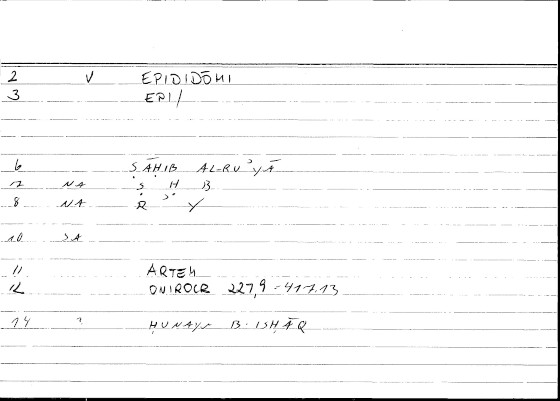 2 V EPIDIDŌMI
3 EPI/
6 ṢĀḤIB AL-RUʾYĀ
7 NA Ṣ Ḥ B
8 NA R ʾ Y
10 SA
11 ARTEM
12 ONIROCR 227,9 = 417,13
14 ? ḤUNAYN B. ISḤĀQ